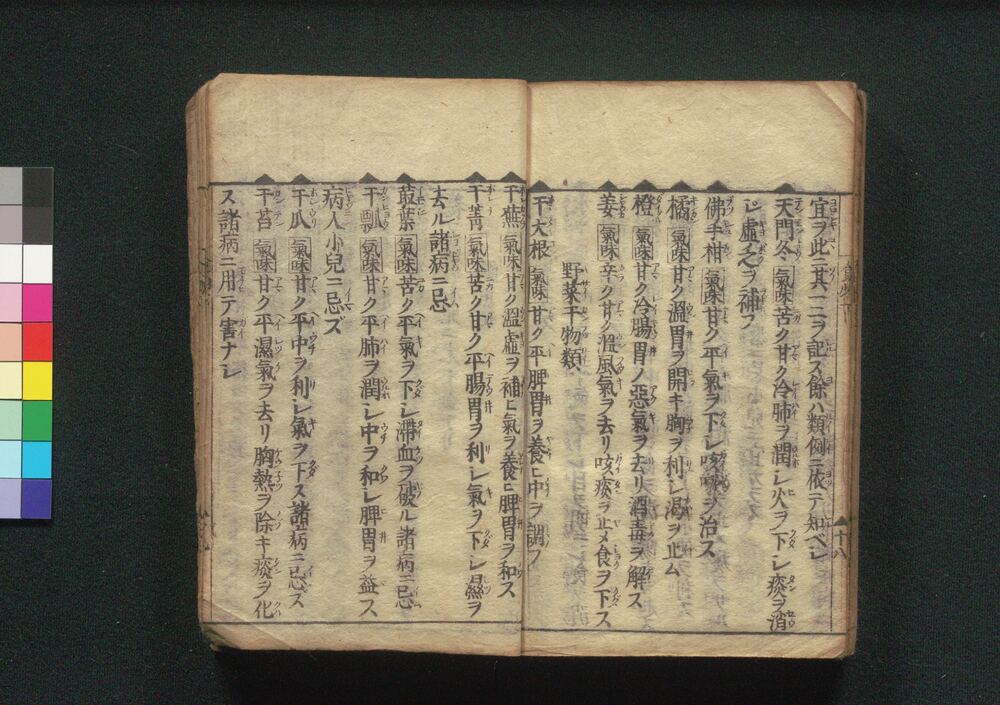 宜ヲ此ニ其一二ヲ記ス餘ハ類例ニ依テ知ベシ
天門冬 氣味苦ク甘ク冷肺ヲ潤シ火ヲ下シ痰ヲ消
シ虚乏ヲ補フ
佛手柑 氣味甘ク平氣ヲ下シ咳嗽ヲ治ス
橘 氣味甘ク溫胃ヲ開キ胸ヲ利シ渴ヲ止ム
橙 氣味甘ク冷腸胃ノ惡氣ヲ去リ酒毒ヲ解ス
姜 氣味辛ク甘ク溫風氣ヲ去リ咳痰ヲ止メ食ヲ下ス
野菜干物類
干大根 氣味甘ク平脾胃ヲ養ヒ中ヲ調フ
十八
干蕪 氣味甘ク溫虛ヲ補ヒ氣ヲ養ヒ脾胃ヲ和ス
干菁 氣味苦ク甘ク平腸胃ヲ利シ氣ヲ下シ濕ヲ
去ル諸病ニ忌
葉 氣味苦ク平氣ヲ下シ滯血ヲ破ル諸病ニ忌
干瓢 氣味甘ク平肺ヲ潤シ中ヲ和シ脾胃ヲ益ス
病人小兒ニ忌ズ
干瓜 氣味甘ク平中ヲ利シ氣ヲ下ス諸病ニ忌ズ
干苔 氣味甘ク平濕氣ヲ去リ胸熱ヲ除キ痰ヲ化
ス諸病ニ用テ害ナシ